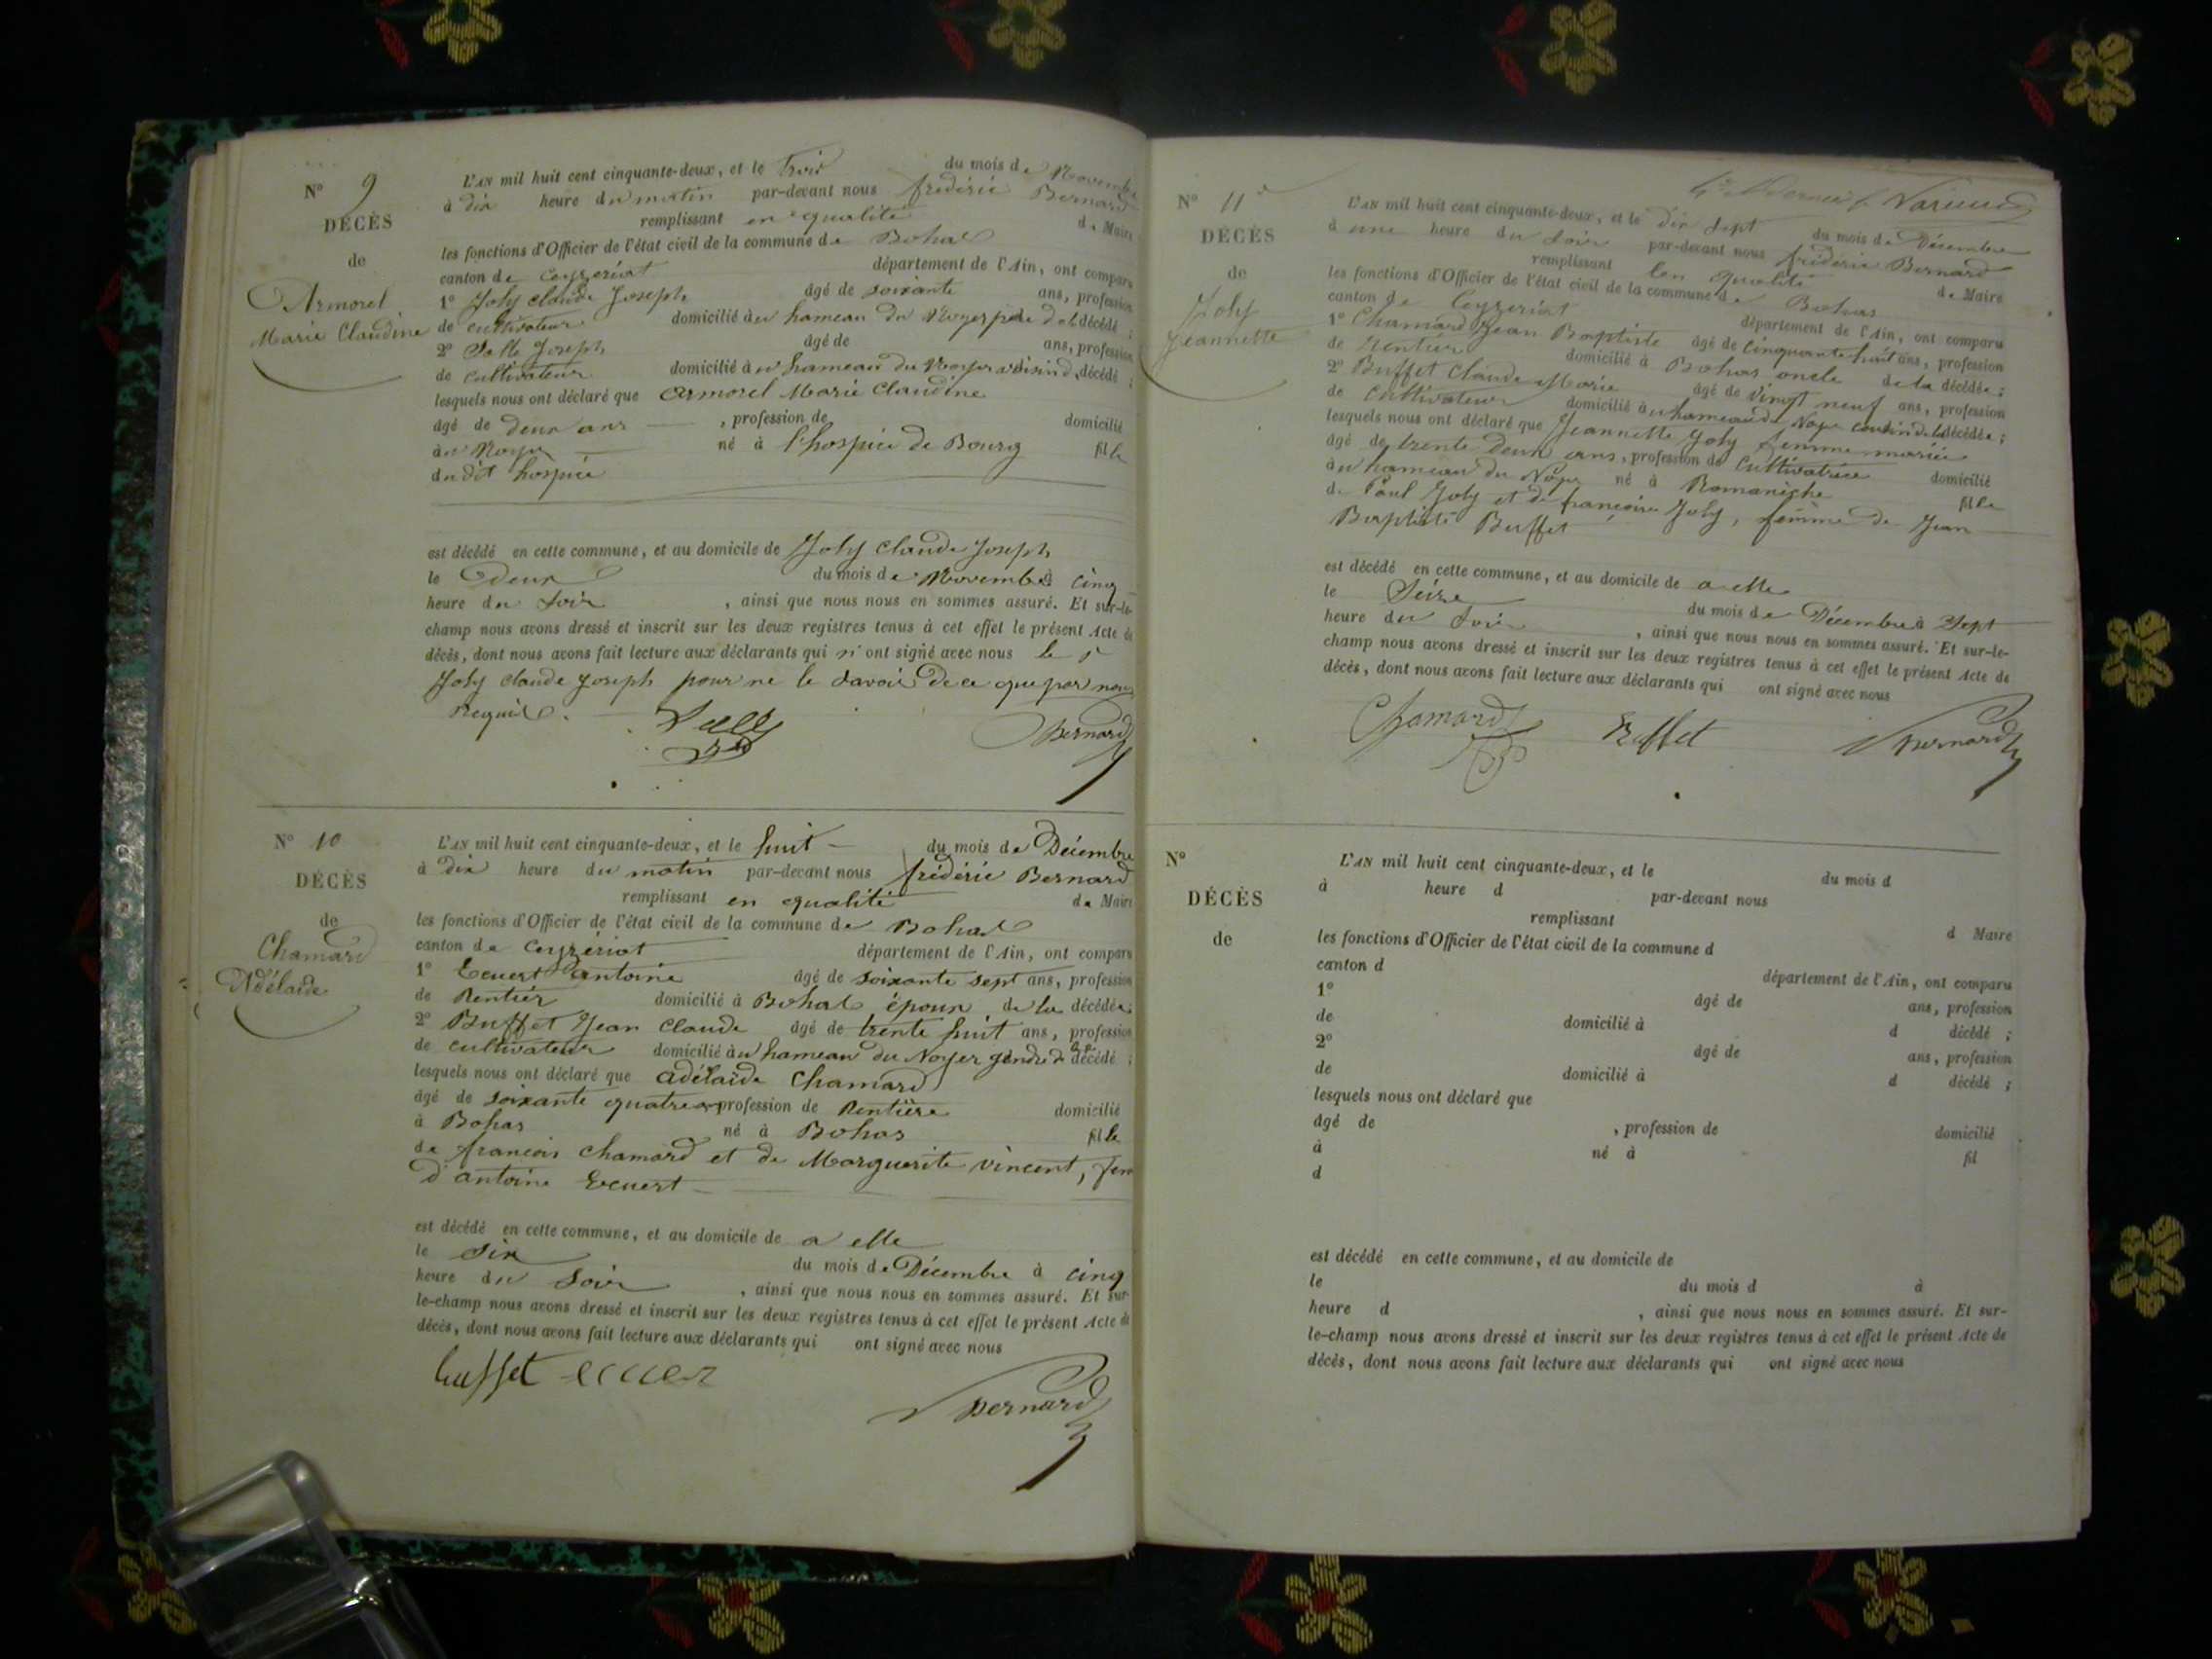 N° 9
DÉCÈS
de
Armorel
Marie Claudine
L'AN mil huit cent cinquante-deux, et le trois du mois de Novembre
à dix heure du matin par-devant nous frédéric Bernard
remplissant en qualité de Maire
les fonctions d'Officier de l'état civil de la commune de Bohas
canton de Ceyzeriat département de l'Ain, ont comparu
1° Joly Claude Joseph âgé de soixante ans, profession
de cultivateur domicilié au hameau du Noyer décédé ;
2° Joseph âgé de ans, profession
de cultivateur domicilié au hameau du Noyer voisin d décédé ;
lesquels nous ont déclaré que armorel Marie Claudine
âgé de deux ans , profession de domicilié
au Noyer né à l'hospice de Bourg fille
du dit hospice
est décédé en cette commune, et au domicile de Joly Claude Joseph
le Deux du mois de Novembre à cinq
heure du soir , ainsi que nous nous en sommes assuré. Et sur-le-
champ nous avons dressé et inscrit sur les deux registres tenus à cet effet le présent Acte de
décès, dont nous avons fait lecture aux déclarants qui n' ont signé avec nous le
Joly Claude Joseph pour ne le savoir de ce que par nous
Requis.
Bernard
N° 10
DÉCÈS
de
Chamard
Adélaïde
L'AN mil huit cent cinquante-deux, et le huit du mois de Décembre
à dix heure du matin par-devant nous frédéric Bernard
remplissant en qualité de Maire
les fonctions d'Officier de l'état civil de la commune de Bohas
canton de Ceyzériat département de l'Ain, ont comparu
1° Ecuert antoine âgé de soixante sept ans, profession
de Rentier domicilié à Bohas époux de la décédée
2° Buffet Jean Claude âgé de trente huit ans, profession
de cultivateur domicilié au hameau du Noyer gendre de la décédé ;
lesquels nous ont déclaré que adélaïde Chamard
âgé de soixante quatre profession de Rentière domicilié
à Bohas né à Bohas fille
de françois Chamard et de Marguerite Vincent, fem
d'antoine Ecuert
est décédé en cette commune, et au domicile de a elle
le six du mois de Décembre à cinq
heure du soir , ainsi que nous nous en sommes assuré. Et sur-
le-champ nous avons dressé et inscrit sur les deux registres tenus à cet effet le présent Acte de
décès, dont nous avons fait lecture aux déclarants qui ont signé avec nous
buffet ecuer
Bernard
N° 11
DÉCÈS
de
Joly
Jeannette
L'AN mil huit cent cinquante-deux, et le dix sept du mois de Décembre
à une heure du soir par-devant nous frédéric Bernard
remplissant en qualité de Maire
les fonctions d'Officier de l'état civil de la commune de Bohas
canton de Ceyzeriat département de l'Ain, ont comparu
1° Chamard Jean Baptiste âgé de cinquante huit ans, profession
de Rentier domicilié à Bohas oncle de la décédée ;
2° Buffet Claude Marie âgé de vingt neuf ans, profession
de Cultivateur domicilié au hameau du Noyer cousin de la décédée ;
lesquels nous ont déclaré que Jeannette Joly femme mariée
âgé de trente deux ans, profession de Cultivatrice domicilié
au hameau du Noyer né à Romanèche fille
de Paul Joly et de françoise Joly, femme de Jean
Baptiste Buffet
est décédé en cette commune, et au domicile de a elle
le Seize du mois de Décembre à Sept
heure du Soir , ainsi que nous nous en sommes assuré. Et sur-le-
champ nous avons dressé et inscrit sur les deux registres tenus à cet effet le présent Acte de
décès, dont nous avons fait lecture aux déclarants qui ont signé avec nous
Chamard Buffet Bernard
N°
DÉCÈS
de
L'AN mil huit cent cinquante-deux, et le du mois d
à heure d par-devant nous
remplissant d Maire
les fonctions d'Officier de l'état civil de la commune d
canton d département de l'Ain, ont comparu
1° âgé de ans, profession
de domicilié à d décédé ;
2° âgé de ans, profession
de domicilié à d décédé ;
lesquels nous ont déclaré que
âgé de , profession de domicilié
à né à fil
d
est décédé en cette commune, et au domicile de
le du mois d à
heure d , ainsi que nous nous en sommes assuré. Et sur-
le-champ nous avons dressé et inscrit sur les deux registres tenus à cet effet le présent Acte de
décès, dont nous avons fait lecture aux déclarants qui ont signé avec nous